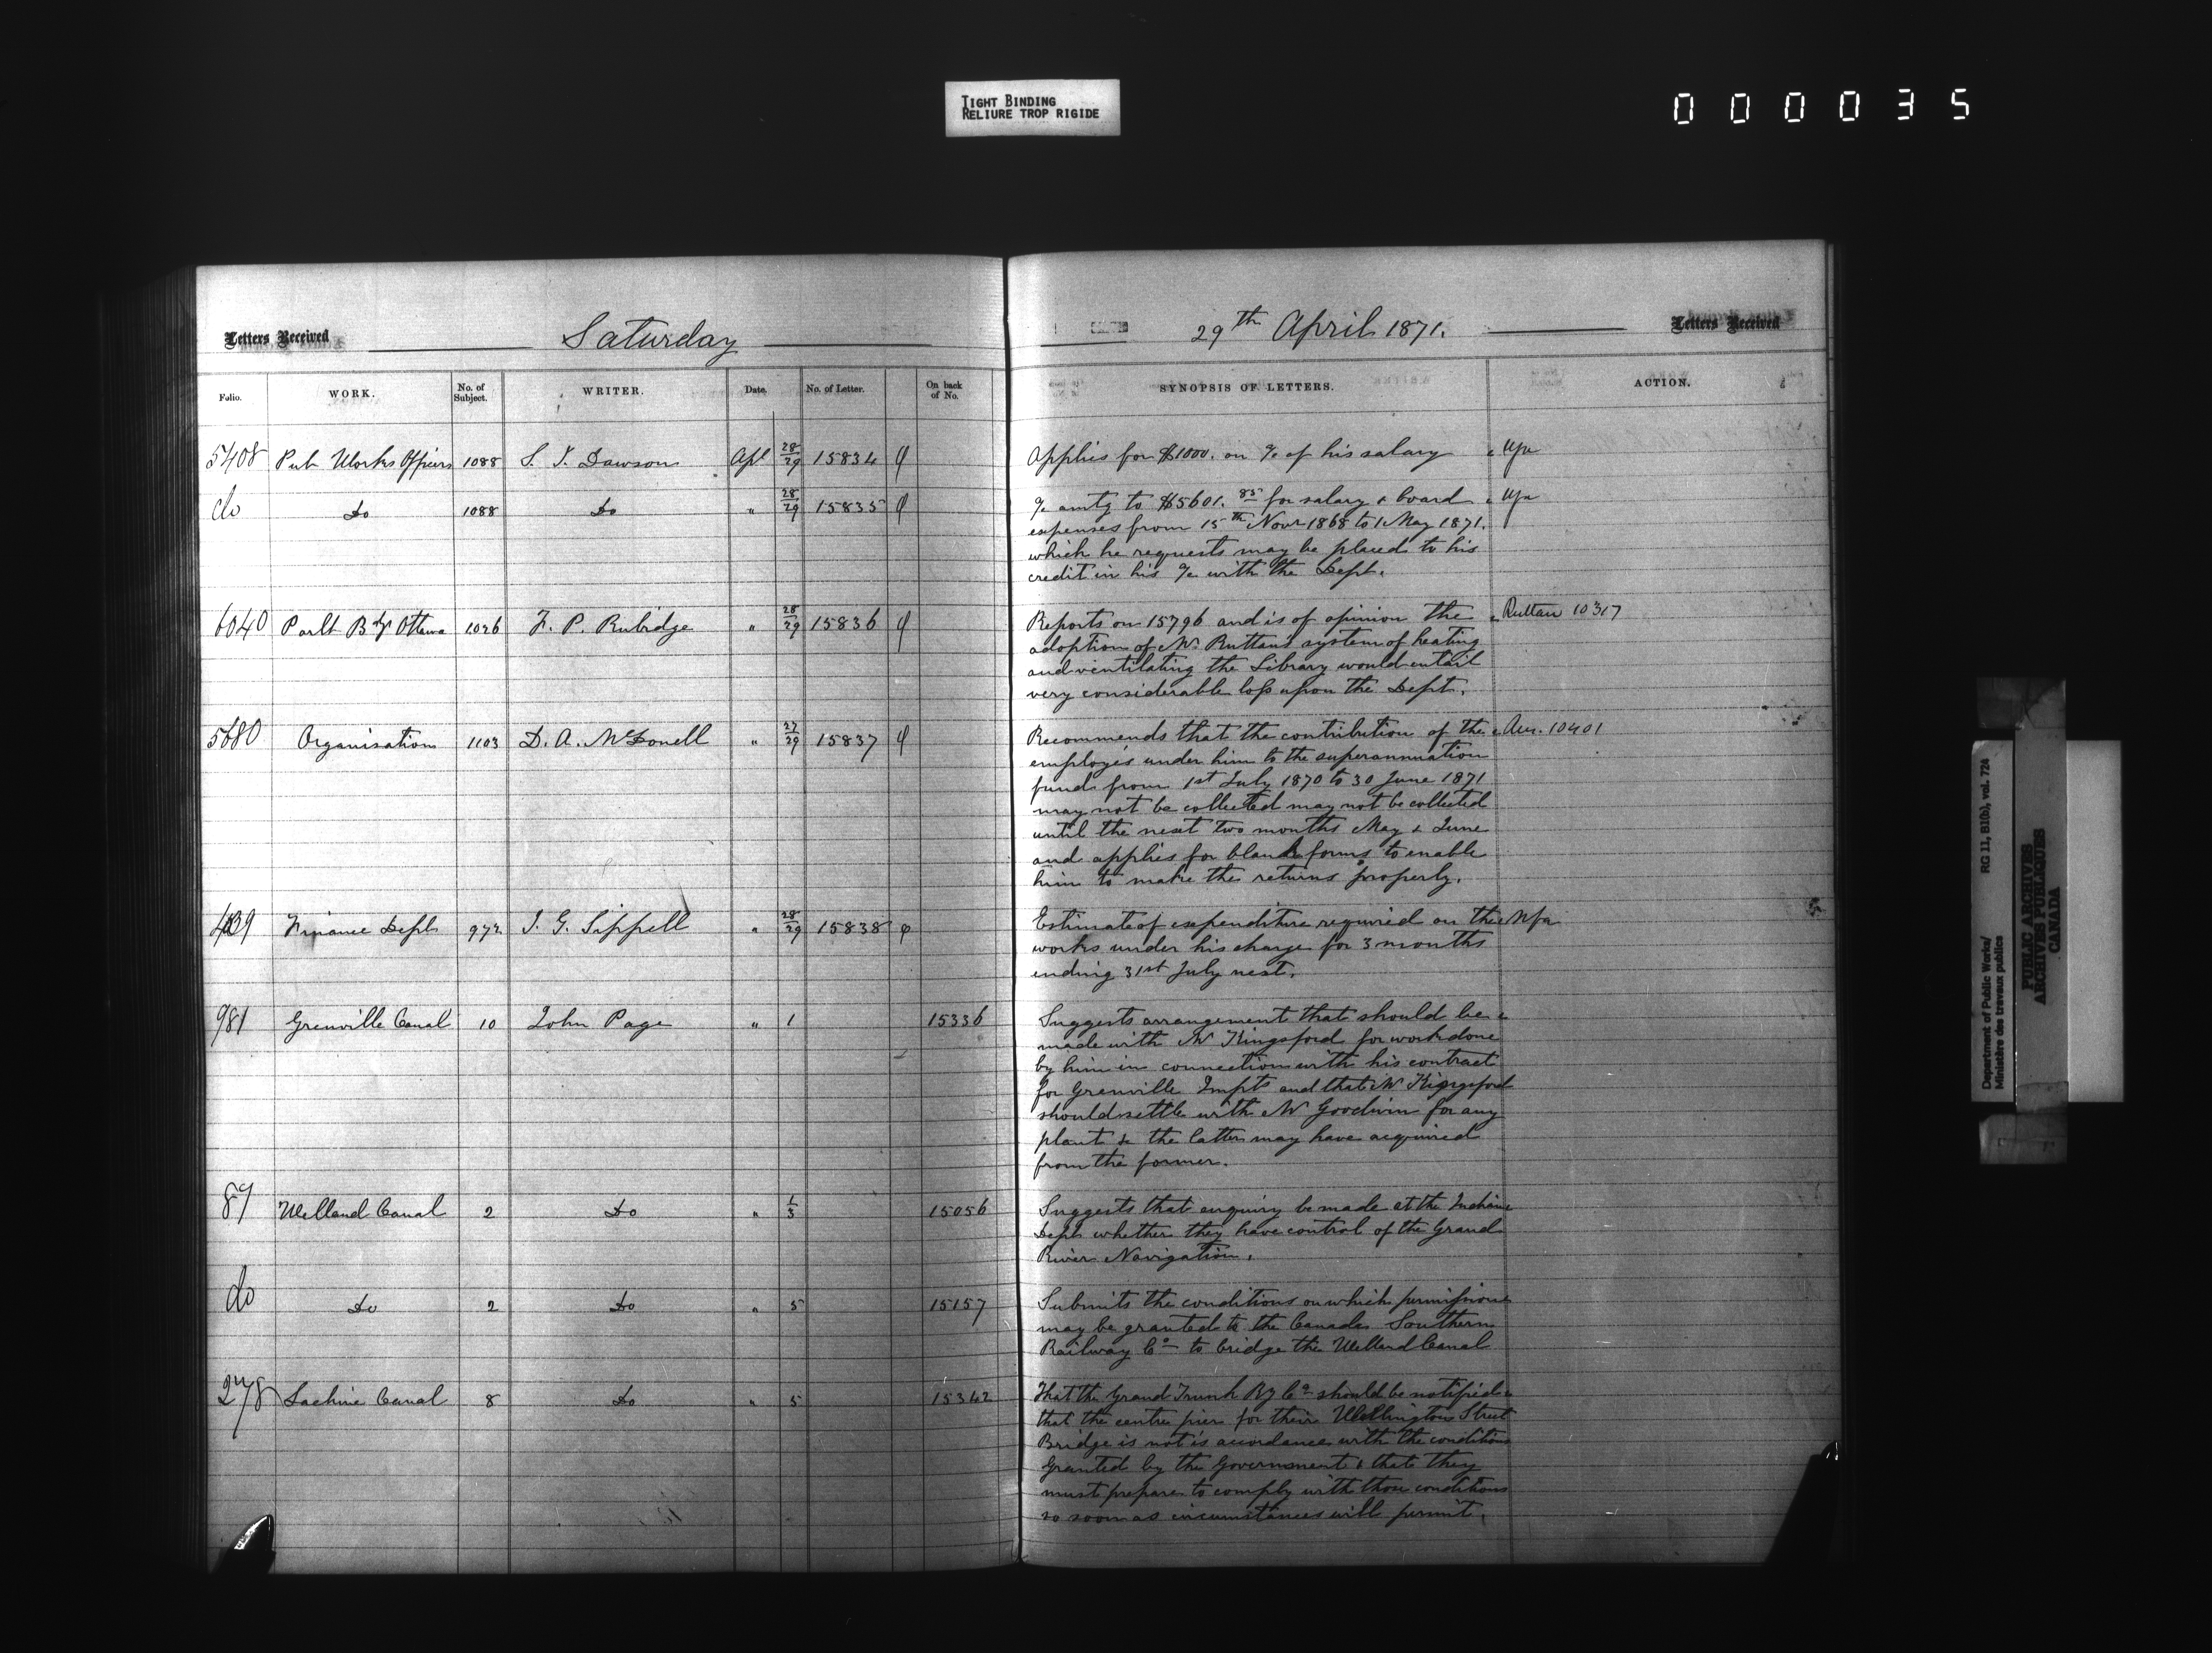 TIGHT BINDING
RELIURE TROP RIGIDE
000035
Letters Received
Saturday
29th April 1871.
Letters Received
Folio. WORK. No. of Subject. WRITER. Date. No. of Letter. On back of No. SYNOPSIS OF LETTERS. ACTION.
5408 Pub Works Officers 1088 S. J. Dawson Apl 28/29 15834 Applies for $1000. on a/c of his salary
do Do 1088 Do " 28/29 15835 a/c amtg to $5601.85 for salary & board
expenses from 15th Novr 1868 to 1 May 1871.
which he requests may be placed to his
credit in his a/c with the Dept.
6040 Parlt Bdgs Ottawa 1026 F. P. Rubidge " 28/29 15836 Reports on 15796 and is of opinion the Ruttan 10317
adoption of Mr Ruttan's system of heating
and ventilating the Library would entail
very considerable loss upon the Dept.
5680 Organisation 1103 D. A. McDonell " 27/29 15837 Recommends that the contribution of the Aur. 10401
employés under him to the superannuation
fund from 1st July 1870 to 30 June 1871
may not be collected may not be collected
until the next two months May & June
and applies for blank forms to enable
him to make the returns properly.
Finance Dept 972 J. G. Sippell " 28/29 15838 Estimate of expenditure required on the Nfa
works under his charge for 3 months
ending 31st July next.
981 Grenville Canal 10 John Page " 1 15336 Suggests arrangement that should be
made with Mr Kingsford for work done
by him in connection with his contract
for Grenville Impts and that Mr Kingsford
should settle with Mr Goodwin for any
plant &c the latter may have acquired
from the former.
87 Welland Canal 2 Do " 1/3 15056 Suggests that enquiry be made at the Indian
Dept whether they have control of the Grand
River Navigation.
do Do 2 Do " 5 15157 Submits the conditions on which permission
may be granted to the Canada Southern
Railway Co to bridge the Welland Canal
278 Lachine Canal 8 Do " 5 15342 That the Grand Trunk Ry Co should be notified
that the centre pier for their Wellington Street
Bridge is not is accordance with the conditions
granted by the Government & that they
must prepare to comply with those conditions
so soon as circumstances will permit.
Department of Public Works/ RG 11, B1(b), vol. 724
Ministère des travaux publics
PUBLIC ARCHIVES
ARCHIVES PUBLIQUES
CANADA